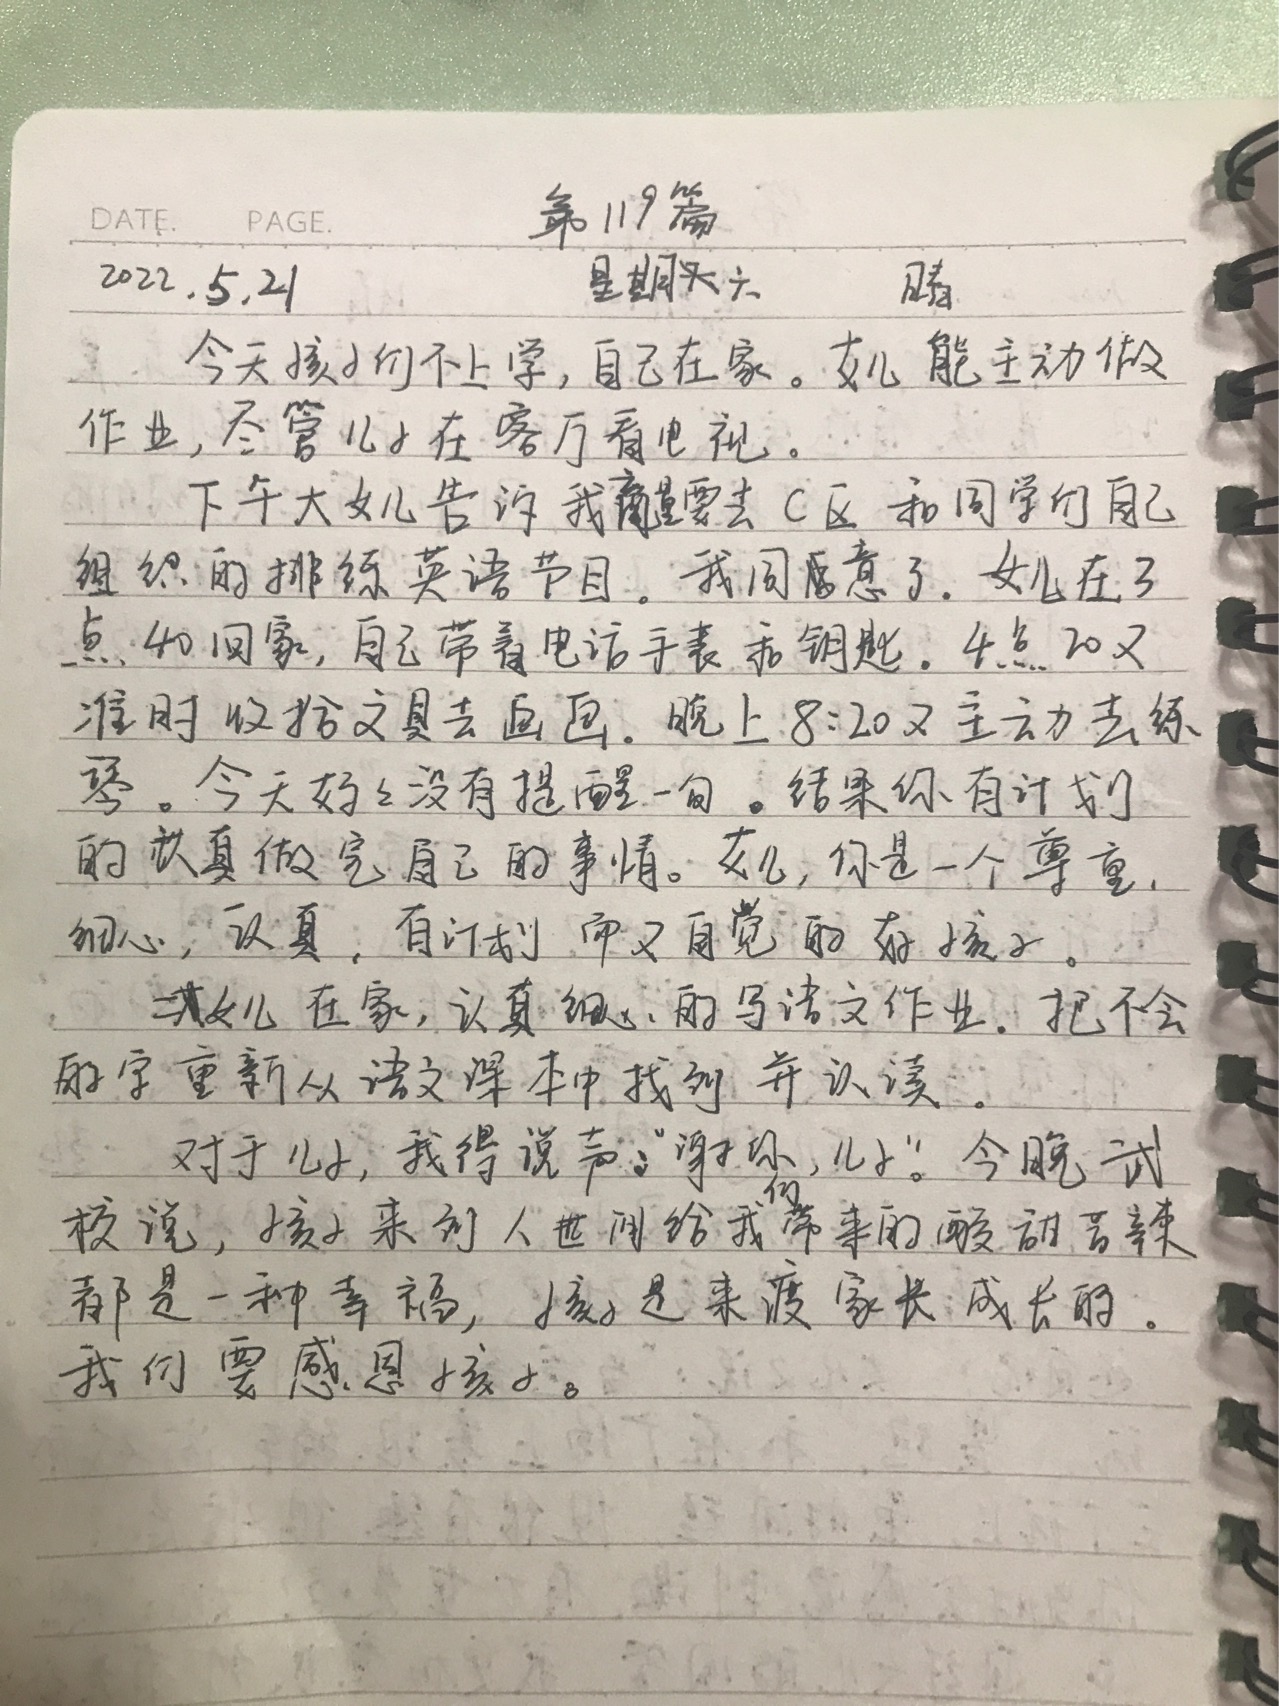 DATE. PAGE. 第119篇
2022.5.21 星期六 晴
今天孩子们不上学,自己在家。女儿能主动做
作业,尽管儿子在客厅看电视。
下午大女儿告诉我要去C区和同学们自己
组织的排练英语节目。我同意了.女儿在3
点40回家,自己带着电话手表和钥匙.4点20又
准时收拾文具去画画.晚上8:20又主动去练
琴。今天妈妈没有提醒一句。结果你有计划
的认真做完自己的事情。女儿,你是一个尊重,
细心,认真,有计划而又自觉的好孩子。
女儿在家,认真细心的写语文作业.把不会
的字重新从语文课本中找到并认读.
对于儿子,我得说声:“谢谢你,儿子”。今晚武
校说,孩子来到人世间给我们带来的酸甜苦辣
都是一种幸福,孩子是来渡家长成长的.
我们要感恩孩子。